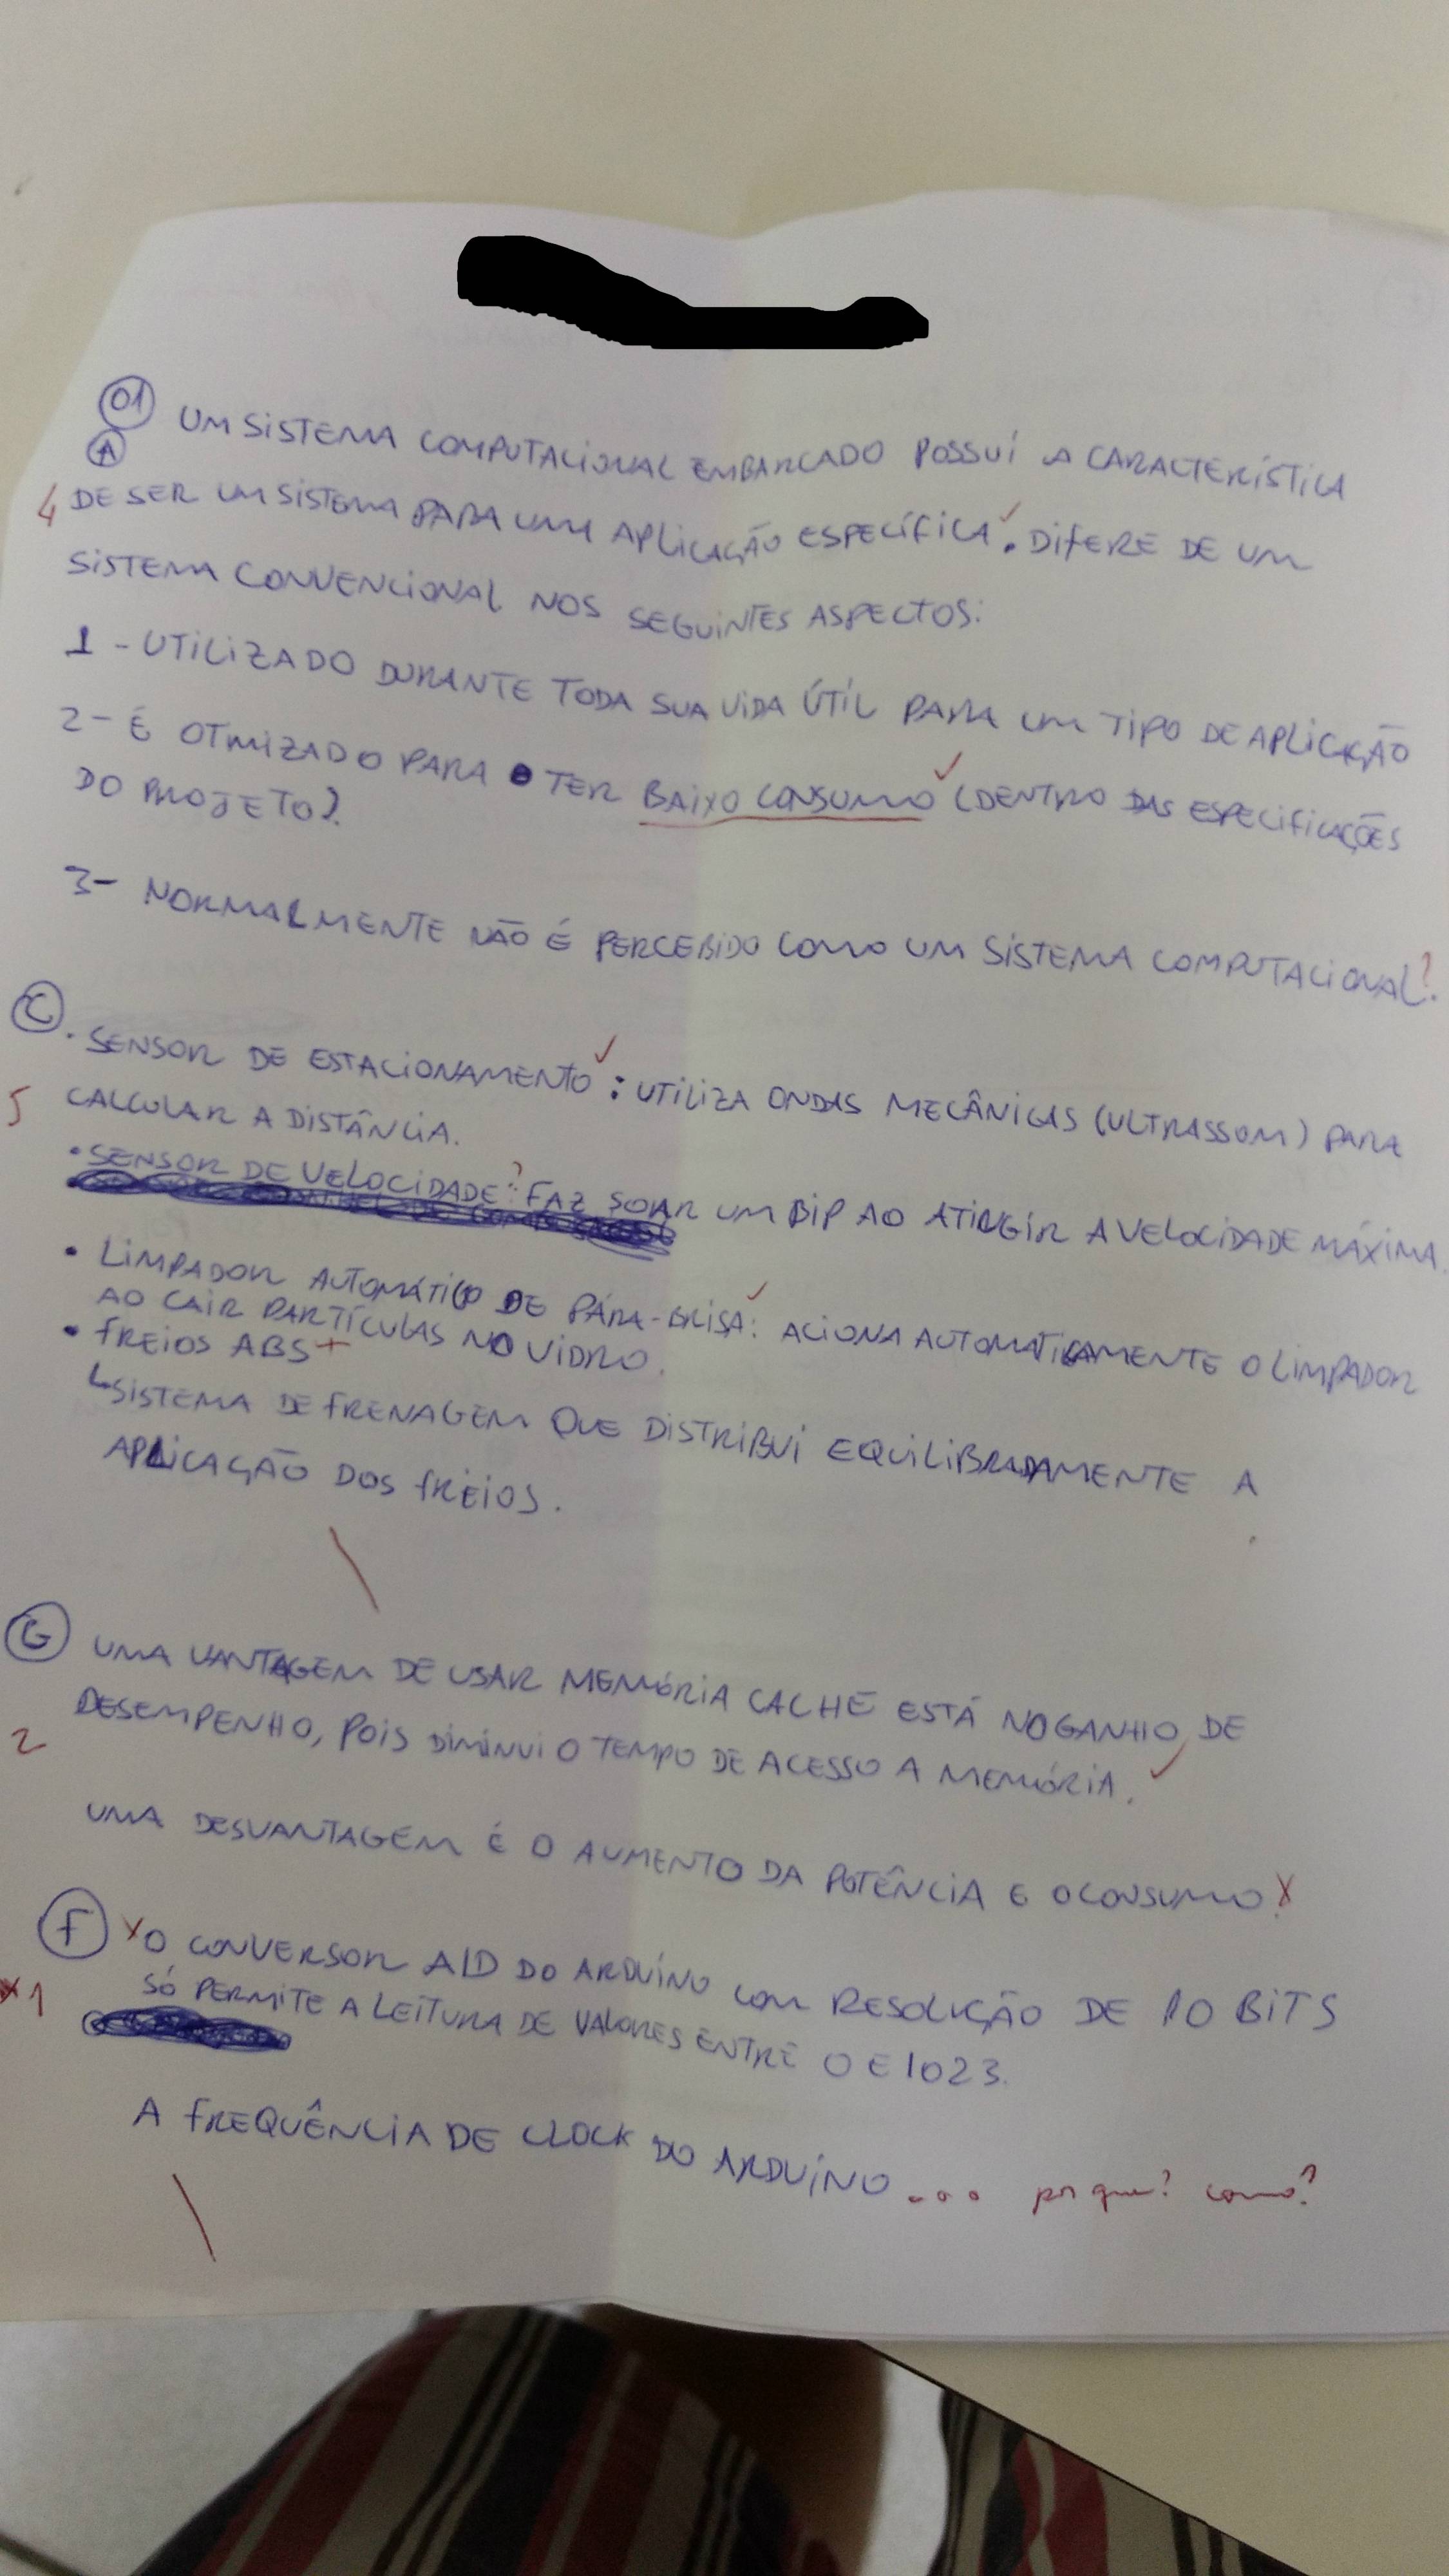 01
A UM SISTEMA COMPUTACIONAL EMBARCADO POSSUÍ A CARACTERÍSTICA
4 DE SER UM SISTEMA PARA UMA APLICAÇÃO ESPECÍFICA. DIFERE DE UM
SISTEMA CONVENCIONAL NOS SEGUINTES ASPECTOS:
1 - UTILIZADO DURANTE TODA SUA VIDA ÚTIL PARA UM TIPO DE APLICAÇÃO
2 - É OTMIZADO PARA TER BAIXO CONSUMO (DENTRO DAS ESPECIFICAÇÕES
DO PROJETO).
3- NORMALMENTE NÃO É PERCEBIDO COMO UM SISTEMA COMPUTACIONAL. ?
C
. SENSOR DE ESTACIONAMENTO: UTILIZA ONDAS MECÂNICAS (ULTRASSOM) PARA
5 CALCULAR A DISTÂNCIA.
• SENSOR DE VELOCIDADE: ? FAZ SOAR UM BIP AO ATINGIR A VELOCIDADE MÁXIMA.
• LIMPADOR AUTOMÁTICO DE PÁRA-BRISA: ACIONA AUTOMATICAMENTE O LIMPADOR
AO CAIR PARTÍCULAS NO VIDRO.
• FREIOS ABS +
SISTEMA DE FRENAGEM QUE DISTRIBUI EQUILIBRADAMENTE A
APLICAÇÃO DOS FREIOS.
G UMA VANTAGEM DE USAR MEMÓRIA CACHE ESTÁ NO GANHO DE
2 DESEMPENHO, POIS DIMINUI O TEMPO DE ACESSO A MEMÓRIA.
UMA DESVANTAGEM É O AUMENTO DA POTÊNCIA E O CONSUMO. X
F X O CONVERSOR A/D DO ARDUÍNO COM RESOLUÇÃO DE 10 BITS
1 SÓ PERMITE A LEITURA DE VALORES ENTRE 0 E 1023.
A FREQUÊNCIA DE CLOCK DO ARDUÍNO ... por que? como?